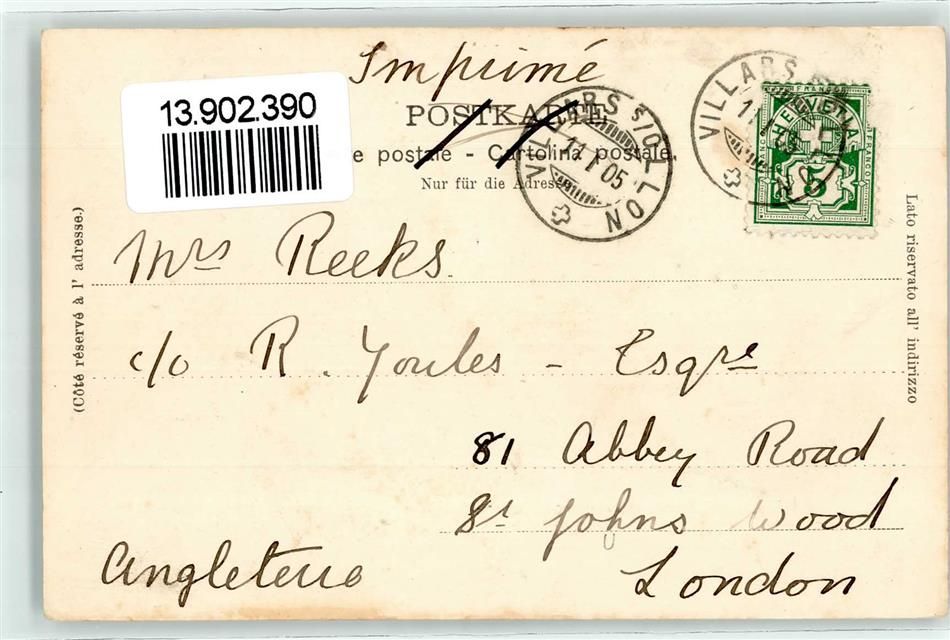 Imprimé
13.902.390
POSTKARTE
e postale - Cartolina postale.
Nur für die Adresse
VILLARS S/OLLON
11 I 05
VILLARS
11 I 05
FRANCO
HELVETIA
5
(Côté réservé à l' adresse.)
Lato riservato all' indirizzo
Mrs Reeks.
c/o R. Youles - Esqre
81 Abbey Road
St Johns Wood
Angleterre
London